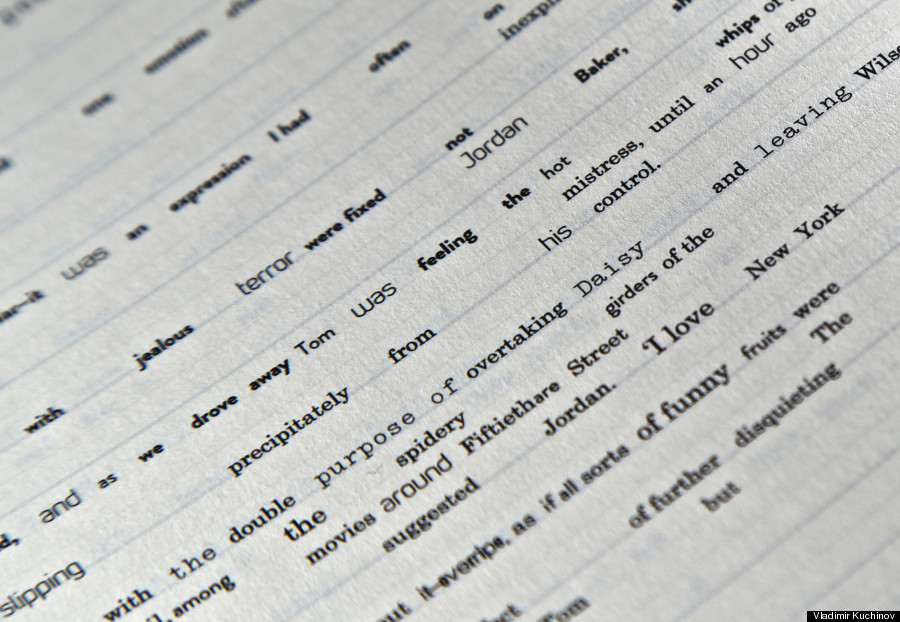 one emotion
was an expression I had often
on
with jealous terror were fixed not
Jordan Baker,
and as we drove away Tom was feeling the hot whips of
mistress, until an hour ago
slipping precipitately from his control.
with the double purpose of overtaking Daisy and leaving
among the spidery girders of the
movies around Fiftiethare Street
suggested Jordan. 'I love New York
as if all sorts of funny fruits were
The
of further disquieting
but
Tom
Vladimir Kuchinov